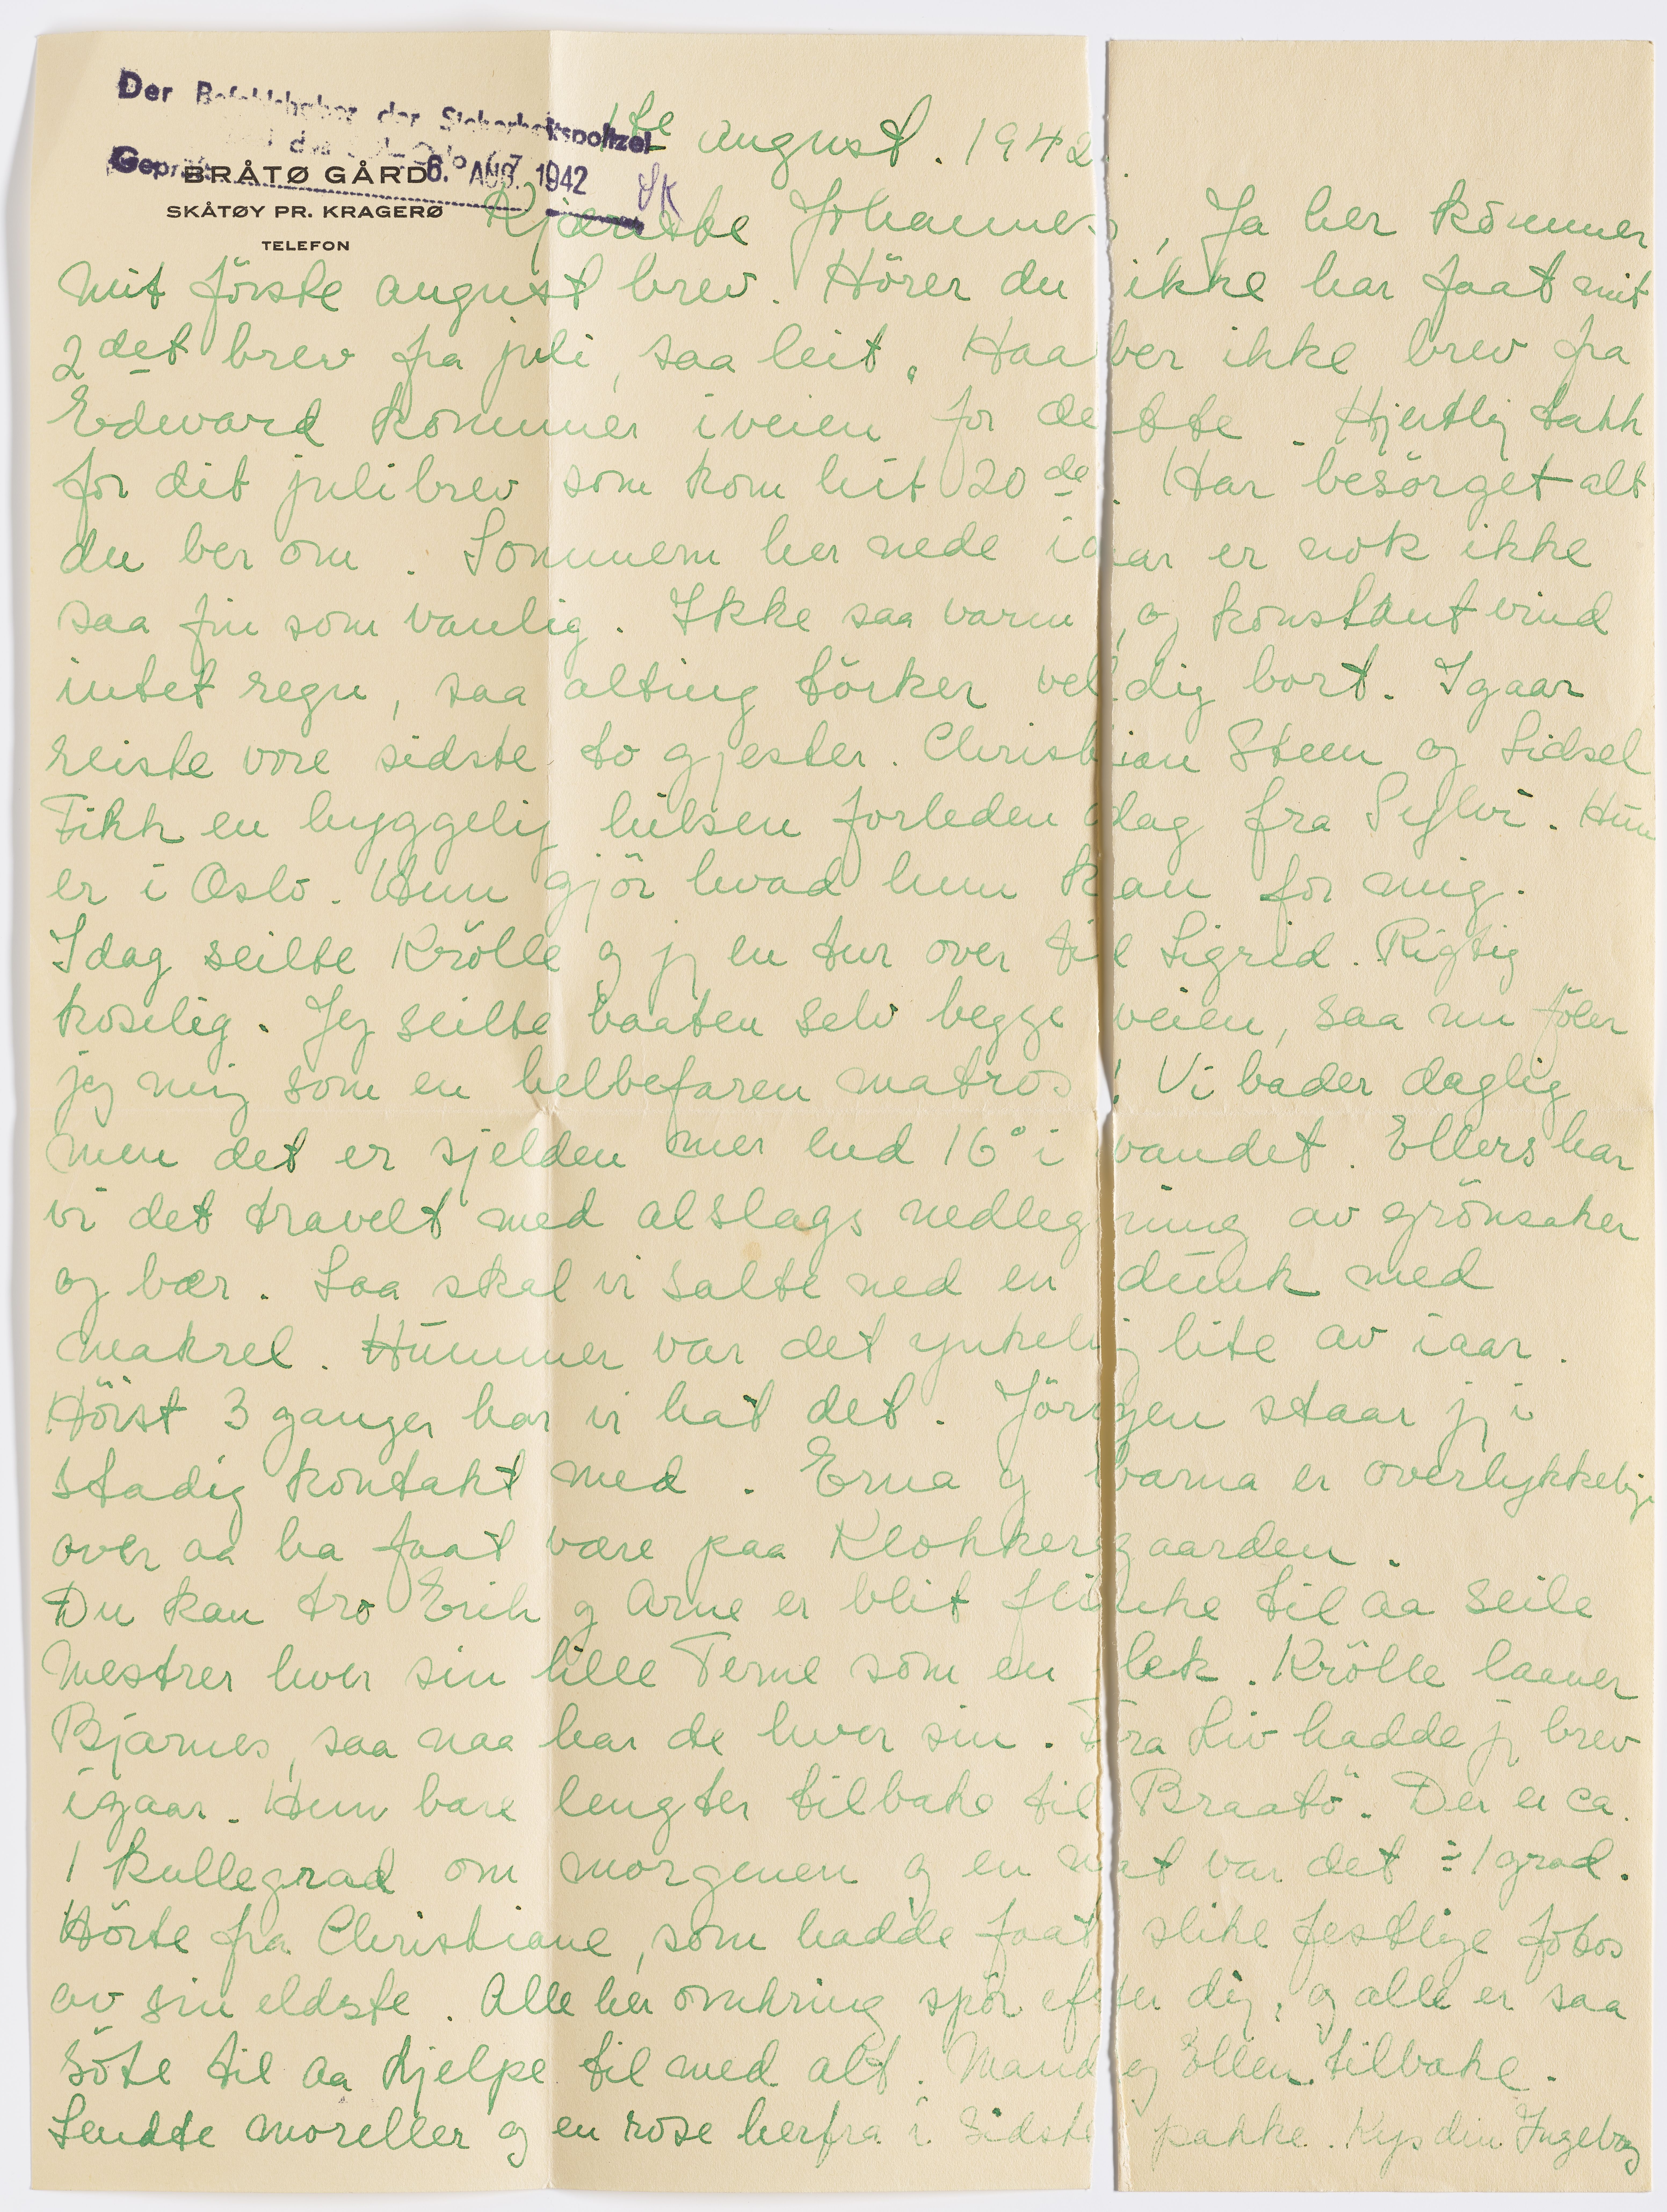 Der Befehlshaber der Sicherheitspolizei
Geprüft 6. AUG. 1942
BRÅTØ GÅRD
SKÅTØY PR. KRAGERØ
TELEFON
1ste august. 1942
Kjæreste Johannes, Ja her kommer
mit första august brev. Hörer du ikke har faat mit
2det brev fra juli, saa leit. Haaber ikke brev fra
Edward kommer iveien for dette. Hjertlig takk
for dit julibrev som kom hit 20de. Har besörget alt
du ber om. Sommern her nede iaar er nok ikke
saa fin som vanlig. Ikke saa varm, og konstant vind
intet regn, saa alting törker veldig bort. Igaar
reiste vore sidste to gjester. Christian Steen og Sidsel
Fikk en hyggelig hilsen forleden dag fra Sylvi. Hun
er i Oslo. Hun gjör hvad hun kan for mig.
Idag seilte Krölle og jg en tur over til Sigrid. Rigtig
koselig. Jeg seilte baaten selv begge veien, saa nu föler
jeg mig som en helbefaren matros! Vi bader daglig
men det er sjelden mer end 16° i vandet. Ellers har
vi det travelt med alslags nedlegning av grönsaker
og bær. Saa skal vi salte ned en dunk med
makrel. Hummer var det ynkelig lite av iaar.
Höist 3 ganger har vi hat det. Jörgen staar jg i
stadig kontakt med. Erna og barna er overlykkelige
over aa ha faat være paa Klokkergaarden.
Du kan tro Erik og Arne er blit flinke til aa seile
Mestrer hver sin lille Terne som en lek. Krölle laaner
Bjarnes, saa naa har de hver sin. Fra Liv hadde jg brev
igaar. Hun bare lengter tilbake til Braatö. Der er ca.
1 kullegrad om morgenen og en nat var det ÷ 1 grad.
Hörte fra Christiane, som hadde faat slike festlige fotos
av sin eldste. Alle her omkring spör efter dig, og alle er saa
söte til aa hjelpe til med alt. Mand og Ellen tilbake.
Sendte moreller og en rose herfra i sidste pakke. Kys din Ingeborg